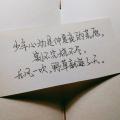 少年心动是仲夏夜的荒原，
割不完烧不尽。
长风一吹，野草就连了天。